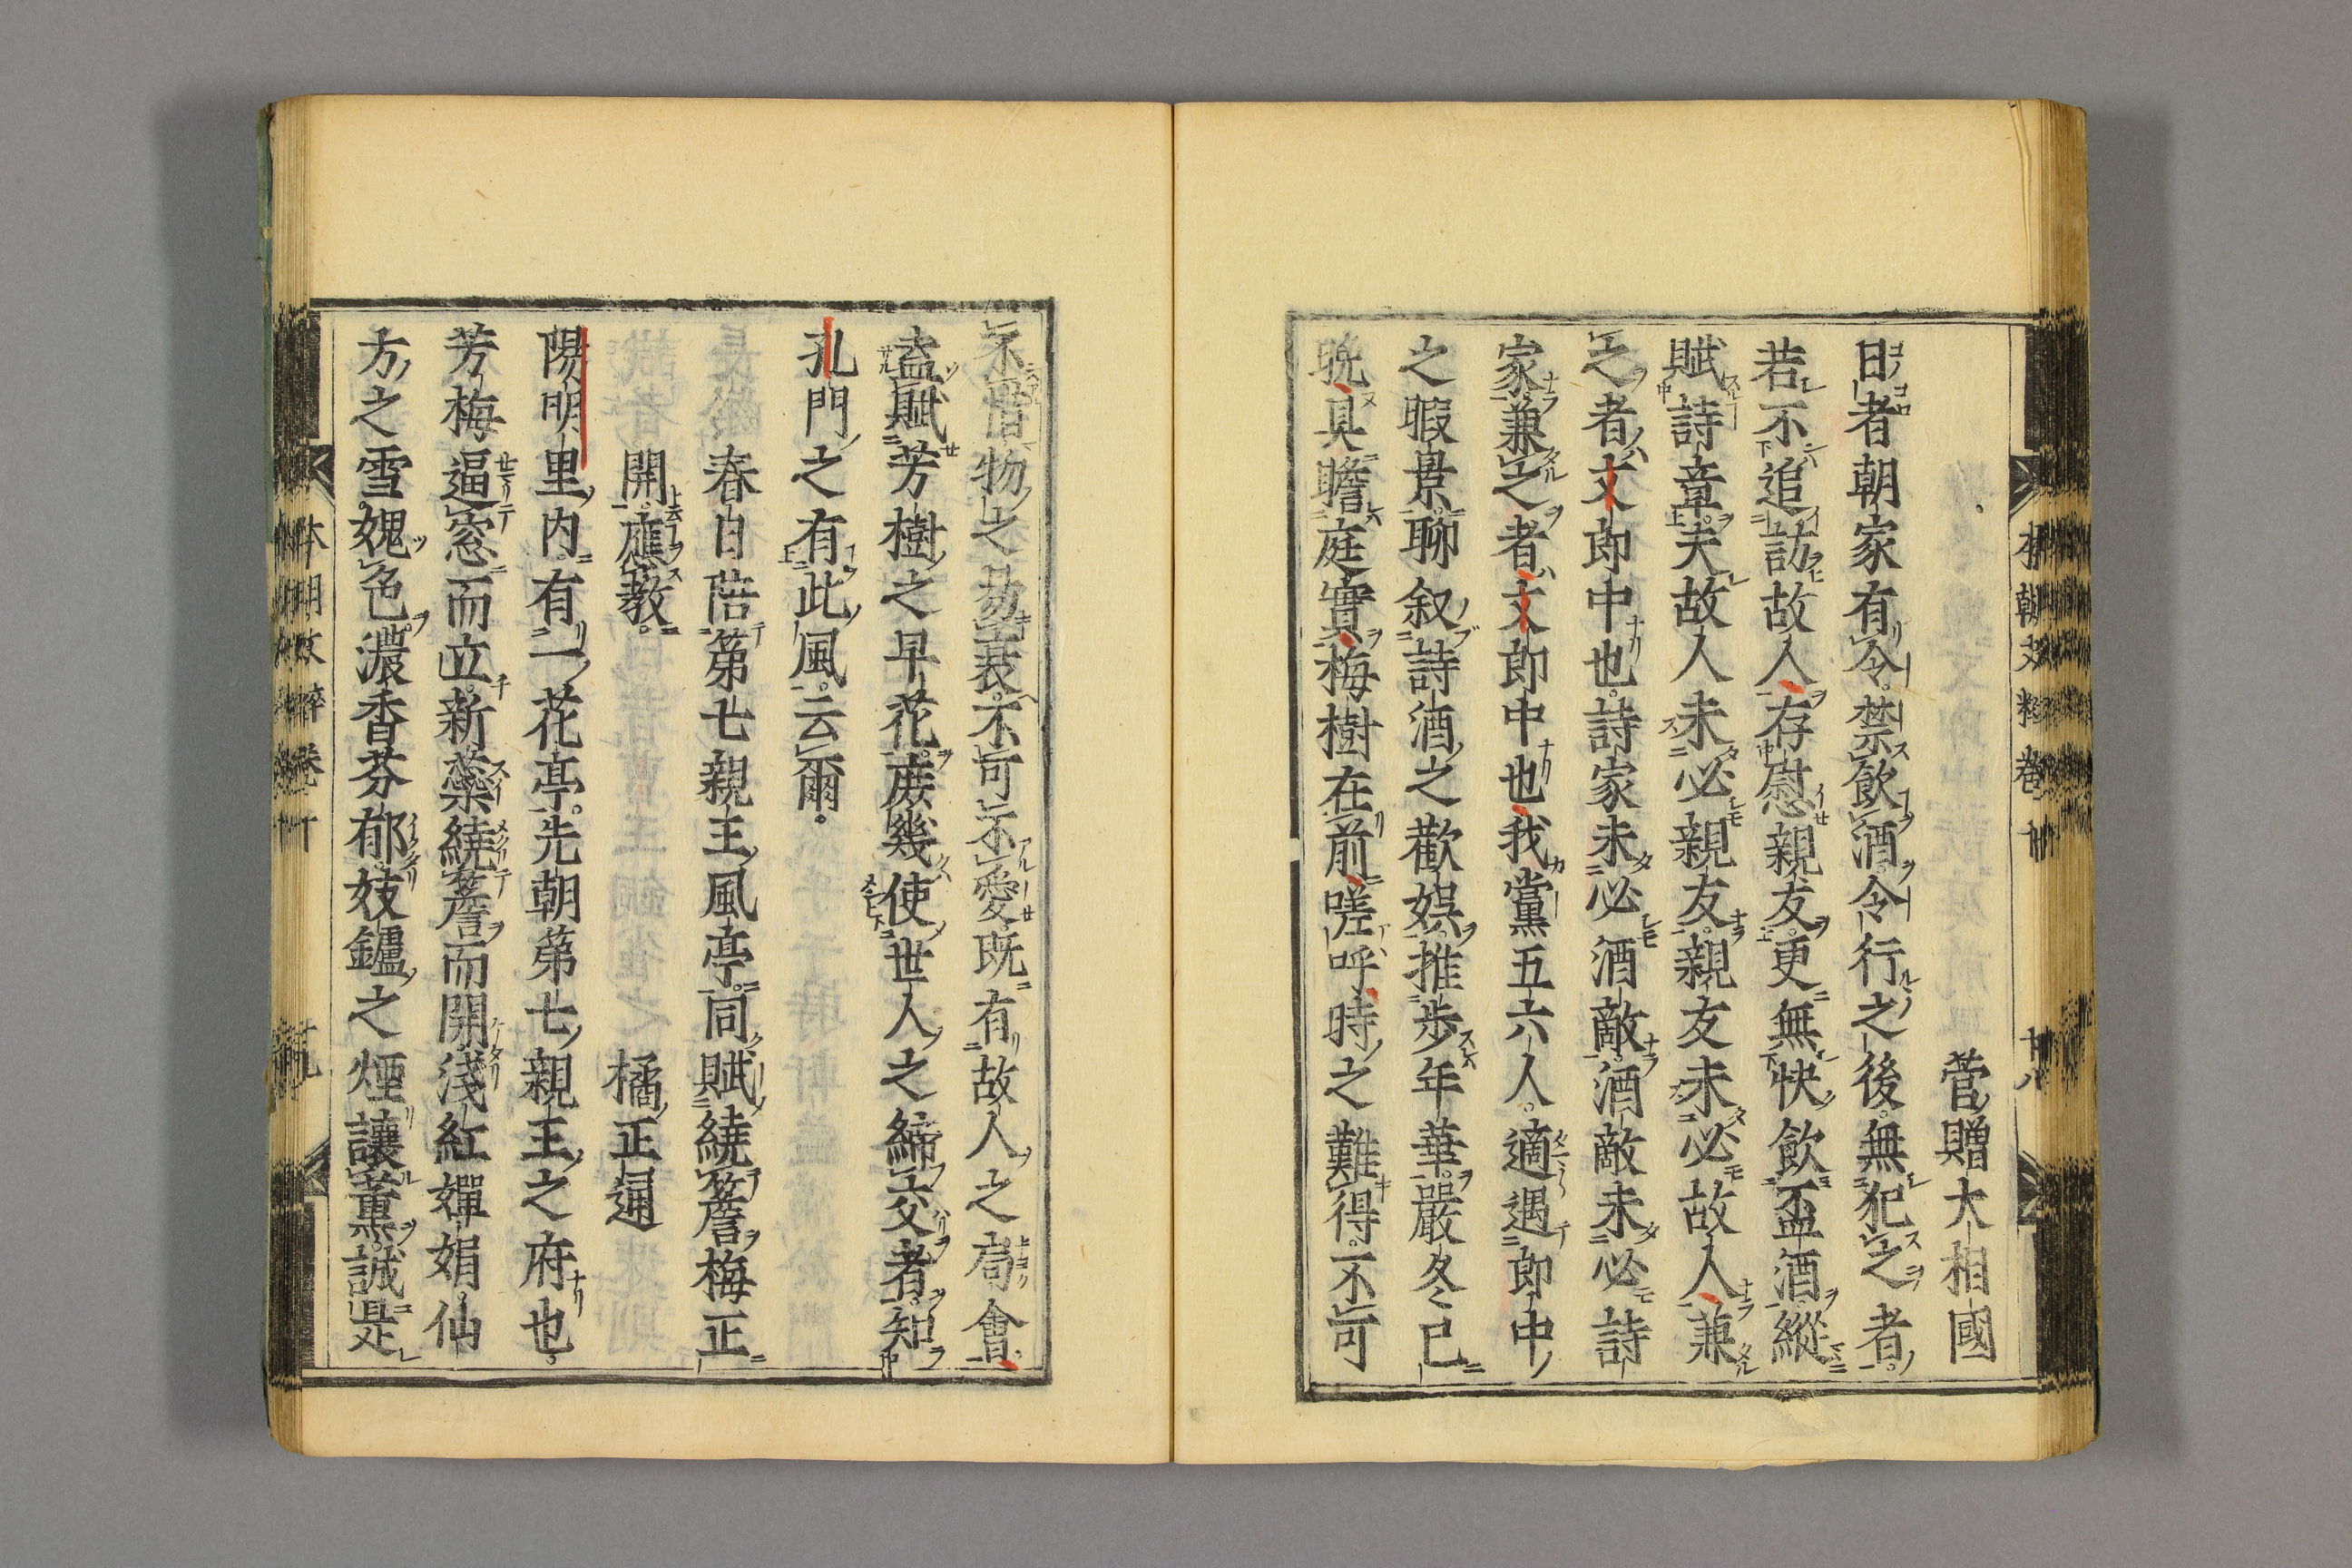 菅贈大相國
日者朝家有令禁飲酒令行之後無犯之者
若不追訪故人存慰親友更無快飲盃酒縱
賦詩章夫故人未必親友親友未必故人兼
之者文郎中也詩家未必酒敵酒敵未必詩
家兼之者文郎中也我黨五六人適遇郎中
之暇景聊叙詩酒之歡娯推歩年華嚴冬已
晩具瞻庭實梅樹在前嗟呼時之難得不可
不惜物之易衰不可不愛既有故人之高會
盍賦芳樹之早花庻幾使世人之締交者知
孔門之有此風云爾
春日陪第七親王風亭同賦繞簷梅正
開應教
橘正通
陽明里内有一花亭先朝第七親王之府也
芳梅逼窓而立新蘂繞簷而開淺紅嬋娟仙
方之雪媿色濃香芬郁妓鑪之煙讓薫誠是
本朝文粹卷十 廿八
本朝文粹卷十 廿九